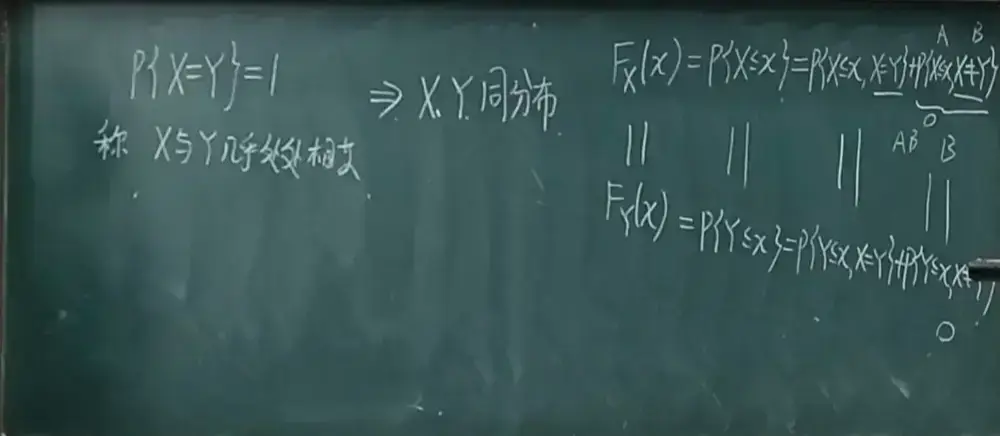 P{X=Y}=1
称 X与Y几乎处处相等
⇒ X,Y同分布
A B
F_X(x)=P{X≤x}=P{X≤x, X=Y}+P{X≤x, X≠Y}
0
AB B
|| || || ||
F_Y(x)=P{Y≤x}=P{Y≤x, X=Y}+P{Y≤x, X≠Y}
0